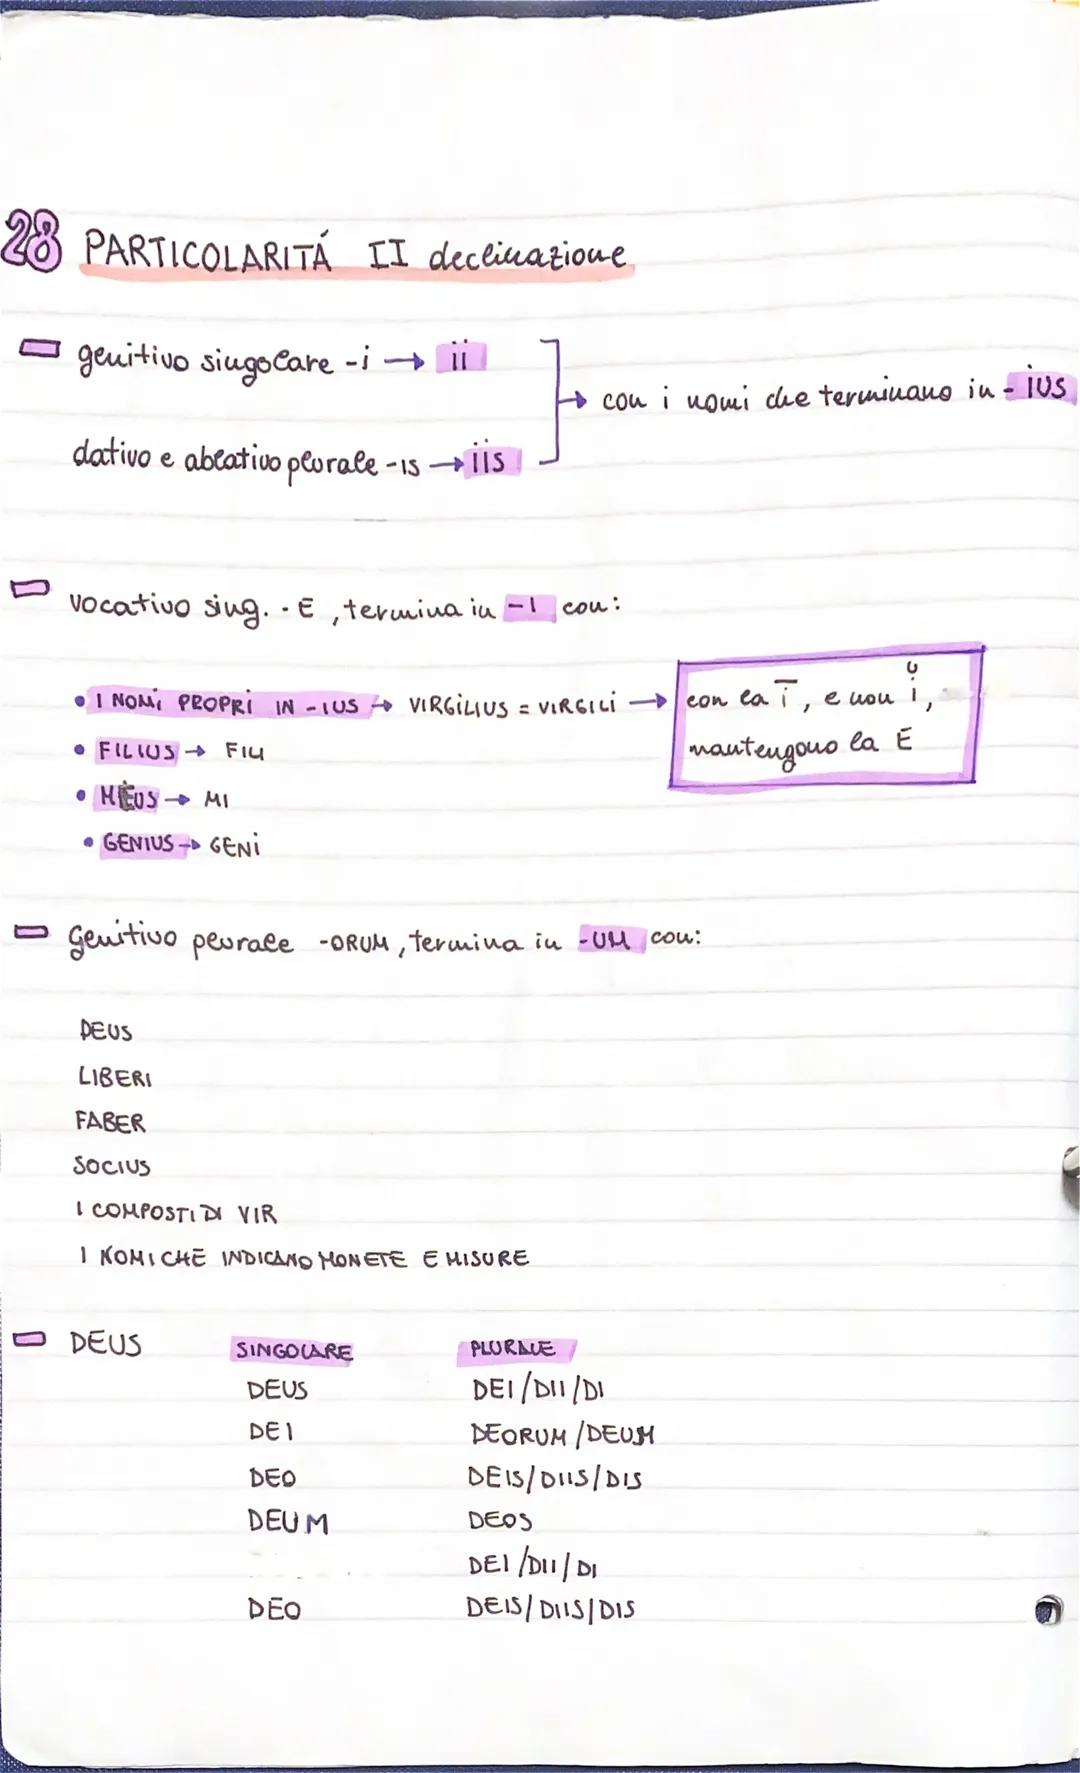 28 PARTICOLARITÁ II declinazione
genitivo singolare -i → ii
→ con i nomi che terminano in -ius
dativo e ablativo plurale -is → iis
vocativo sing. -E, termina in -I con:
• I NOMi PROPRI IN -IUS → VIRGiLIUS = VIRGILi → con la ī, e non ĭ,
mantengono la E
• FILIUS → FILI
• MEUS → MI
• GENIUS → GENi
Genitivo plurale -ORUM, termina in -UM con:
DEUS
LIBERI
FABER
SOCIUS
I COMPOSTI DI VIR
I NOMI CHE INDICANO MONETE E MISURE
DEUS SINGOLARE PLURALE
DEUS DEI/DII/DI
DEI DEORUM/DEUM
DEO DEIS/DIIS/DIS
DEUM DEOS
DEI/DII/DI
DEO DEIS/DIIS/DIS